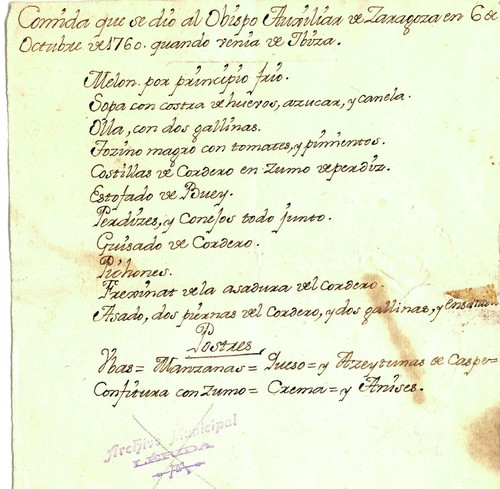 Comida que se dió al Obispo Auxiliar de Zaragoza en 6 de
Octubre de 1760. quando venia de Ibiza.
Melon por principio frio.
Sopa con costra de huevos, azucar, y canela.
Olla, con dos gallinas.
Tozino magro con tomates, y pimientos.
Costillas de Cordero en zumo de perdiz.
Estofado de Buey.
Perdizes, y Conejos todo junto.
Guisado de Cordero.
Pichones.
Frexinat de la asadura del cordero.
Asado, dos piernas del Cordero, y dos gallinas, y ensalada.
Postres
Vbas= Manzanas= Queso= y Azeytunas de Caspe=
Confitura con zumo= Crema= y Anises.
Archivo Municipal
LÉRIDA